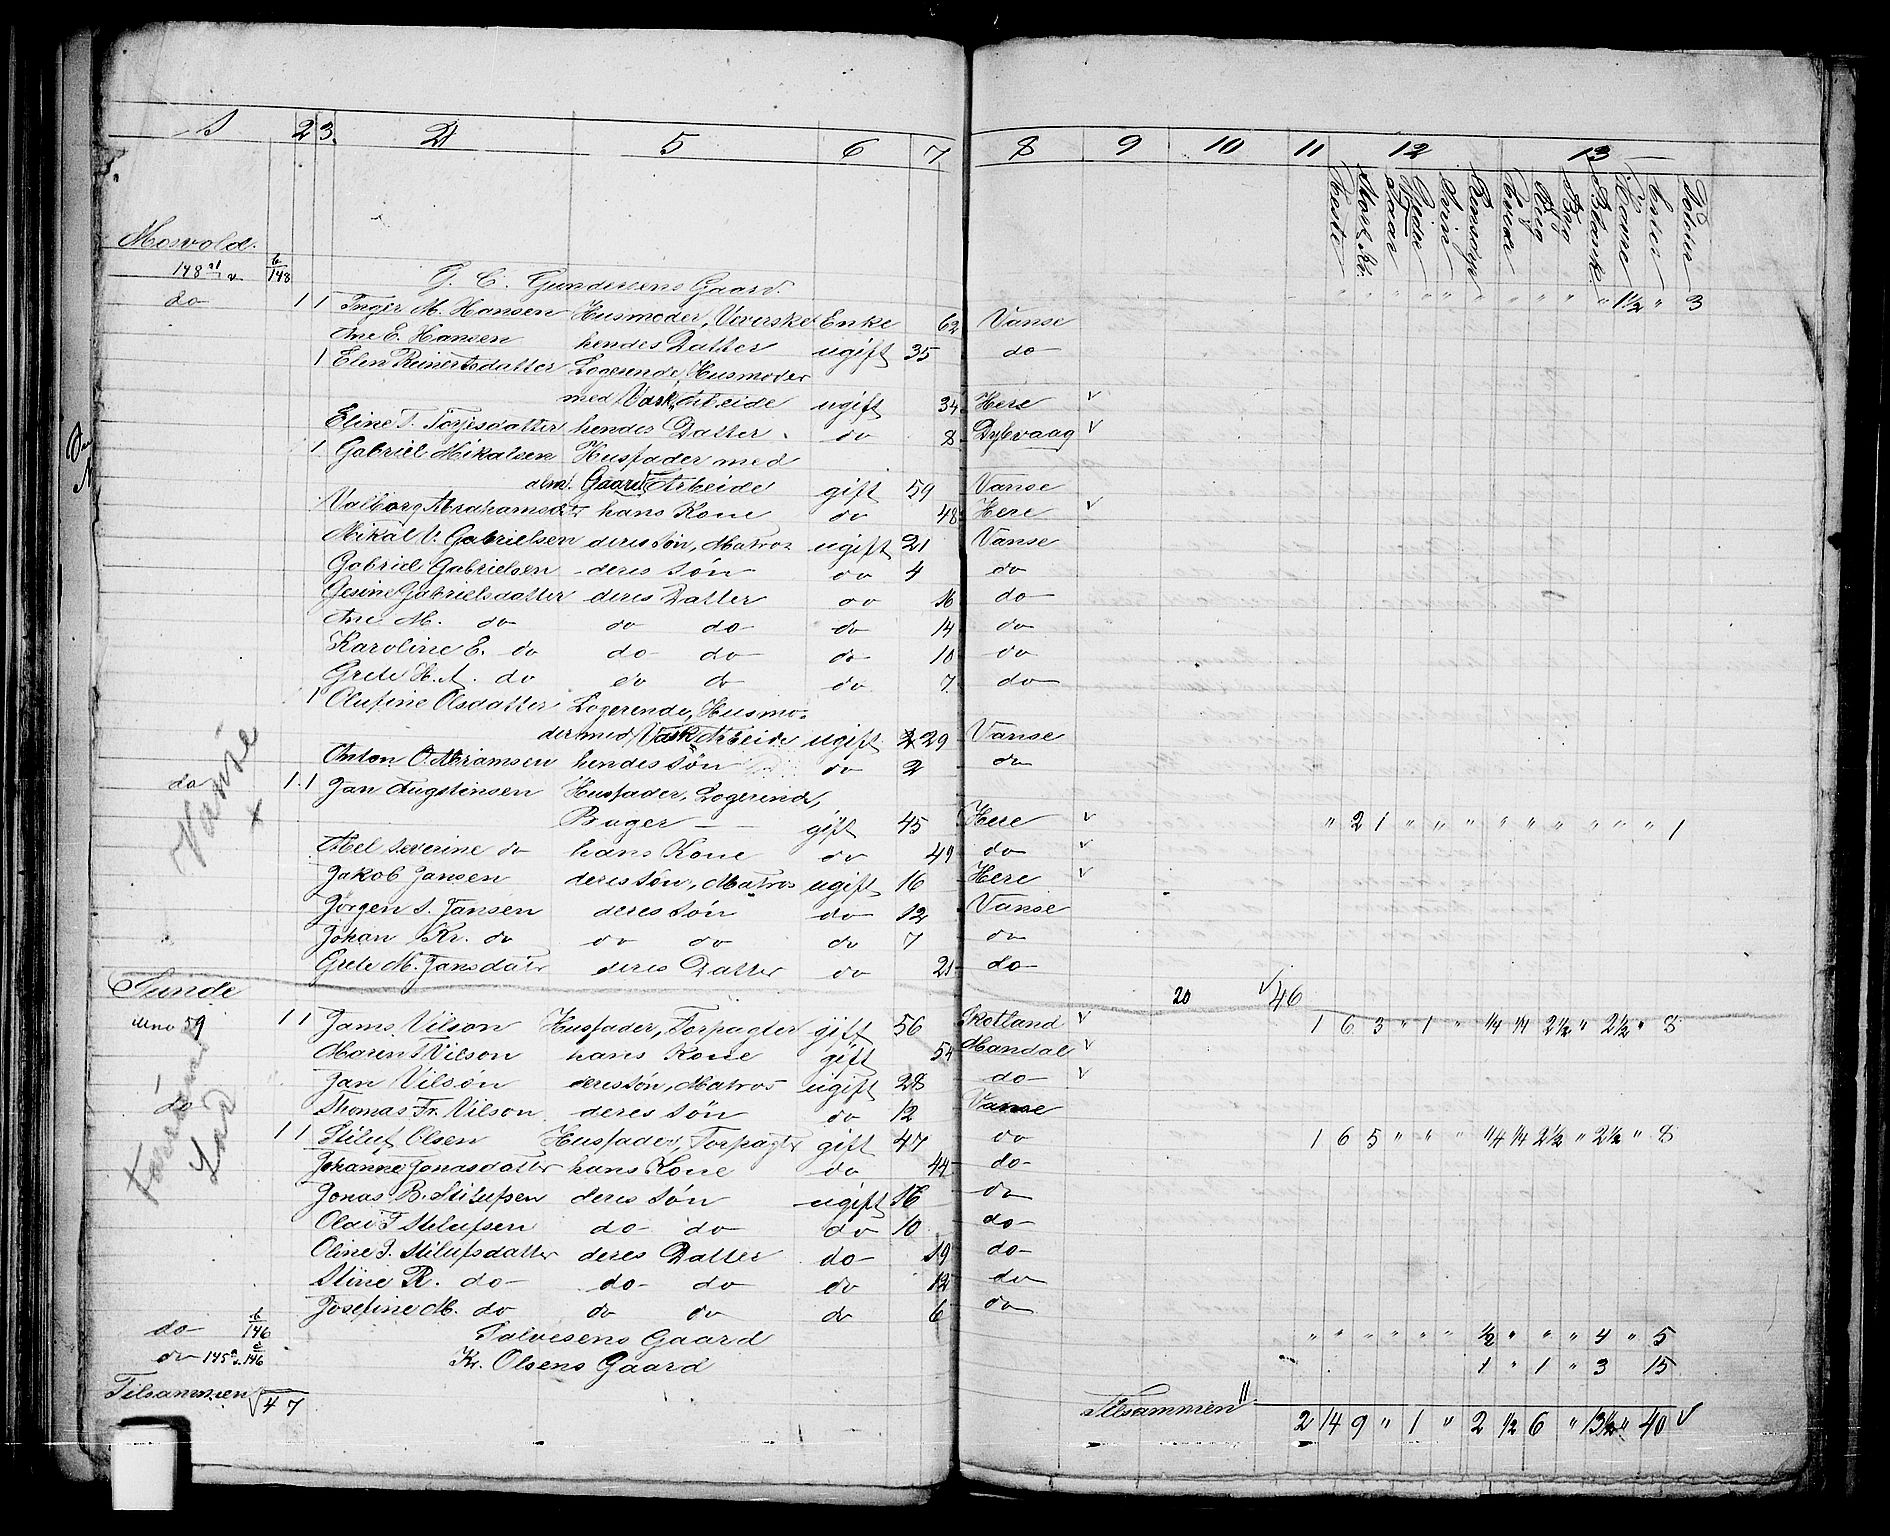 1 2 3. 4 5 6 7 8 9 10 11 12 13
Heste Stort Kv. Faar Gjeder Svin Rensdyr Hvede Rug Byg Blandk. Havre Erter Poteter
Mosvold.
148 b/148
G. C. Gundersens Gaard. " " " " " " " " " " 1½ " 3
do 1 1 Inger M. Hansen Husmoder, Væverske Enke 62 Vanse
Ane E. Hansen hendes Datter ugift 35 do
1 Elen Reinertsdatter Logerende, Husmoder
med Vask Arbeide ugift 34 Here v
Eline T. Torjesdatter hendes Datter do 8 Dybvaag v
1 Gabriel Mikalsen Husfader med
alm. Gaards Arbeide gift 59 Vanse
Valborg Abrahamsdtr hans Kone do 48 Here v
Mikal V. Gabrielsen deres Søn, Matros ugift 21 Vanse
Gabriel Gabrielsen deres Søn do 4 do
Gesine Gabrielsdatter deres Datter do 16 do
Ane M. do do do do 14 do
Karoline E. do do do do 10 do
Grete H. A. do do do do 7 do
1 Olufine Olsdatter Logerende, Husmo-
der med Vask Arbeide ugift 29 Vanse
Anton O. Abramsen hendes Søn do 2 do
do 1 1 Jan Augstensen Husfader, Logerende,
Buger gift 45 Here v " 2 1 " " " " " " " " " 1
Abel Severine do hans Kone do 49 do v
Jakob Jansen deres Søn, Matros ugift 16 Here v
Jørgen S. Jansen deres Søn do 12 Vanse
Johan Kr. do do do do 7 do
Grete M. Jansdatr deres Datter do 21 do
Vanse x
Sunde 20 v 46
uno 59 1 1 Jams Vilson Husfader, Forpagter gift 56 Skotland v 1 6 3 " 1 " ¼ ¼ 2½ " 2½ " 8
Maren T Vilson hans Kone gift 54 Mandal v
Jan Vilson deres Søn, Matros ugift 28 do v
do Thomas Fr. Vilson deres Søn do 12 Vanse
1 1 Stiluf Olsen Husfader, Forpagter gift 47 do 1 6 5 " " " ¼ ¼ 2½ " 2½ " 8
Johanne Jonasdatter hans Kone do 44 do
Jonas B. Stilufsen deres Søn ugift 16 do
Olai T Stilufsen do do do 10 do
Oline P. Stilufsdatter deres Datter do 19 do
Stine R. do do do do 12 do
Josefine M. do do do do 6 do
do b/146 Salvesens Gaard " " " " " " ½ " " " 4 " 5
do 145 146 Kr. Olsens Gaard 1 " 1 " 3 15
Tilsammen v 47 Tilsammen 2 14 9 " 1 " 2 ½ 6 " 13½ " 40 v